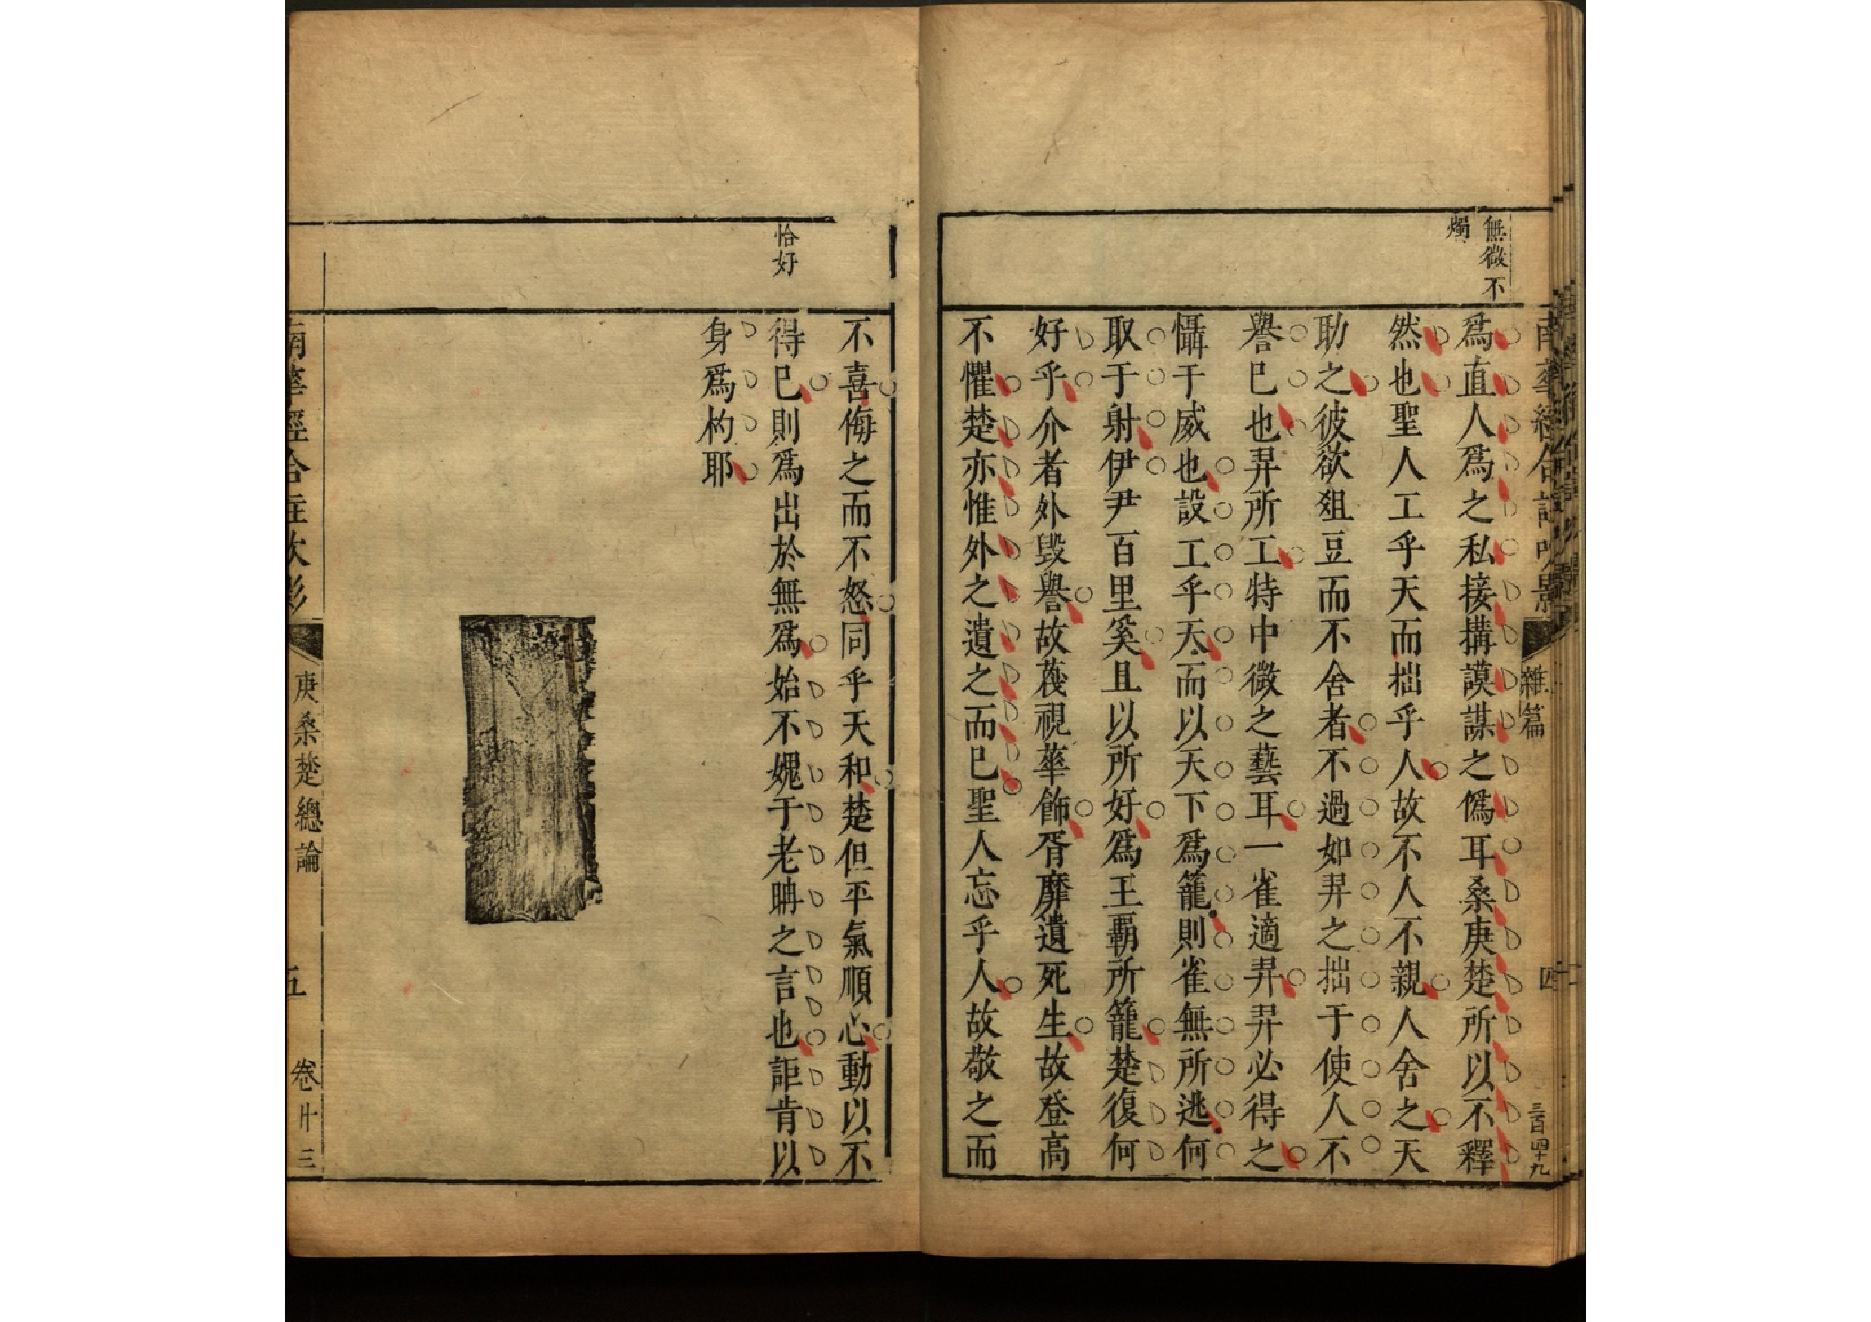 無微不
燭
爲直人爲之私接搆謨謀之僞耳桑庚楚所以不釋
然也聖人工乎天而拙乎人故不人不親人舍之天
助之彼欲俎豆而不舍者不過如羿之拙于使人不
譽已也羿所工特中微之藝耳一雀適羿羿必得之
懾于威也設工乎天而以天下爲籠則雀無所逃何
取于射伊尹百里奚且以所好爲王覇所籠楚復何
好乎介者外毀譽故葠視華飾胥靡遺死生故登高
不懼楚亦惟外之遺之而已聖人忘乎人故敬之而
雜篇
四
三百四十九
恰好
不喜侮之而不怒同乎天和楚但平氣順心動以不
得已則爲出於無爲始不媿于老聃之言也詎肯以
身爲杓耶
南華經合註吹影
庚桑楚總論
五
卷廿三